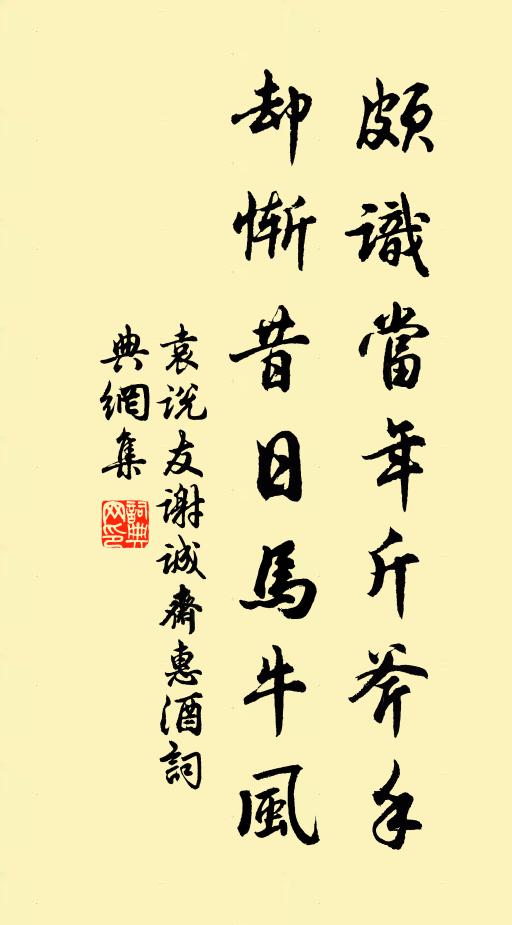 頗識當年斤斧手
却慚昔日馬牛風
袁说友谢诚齋惠酒詞
典網集
詞典
网印